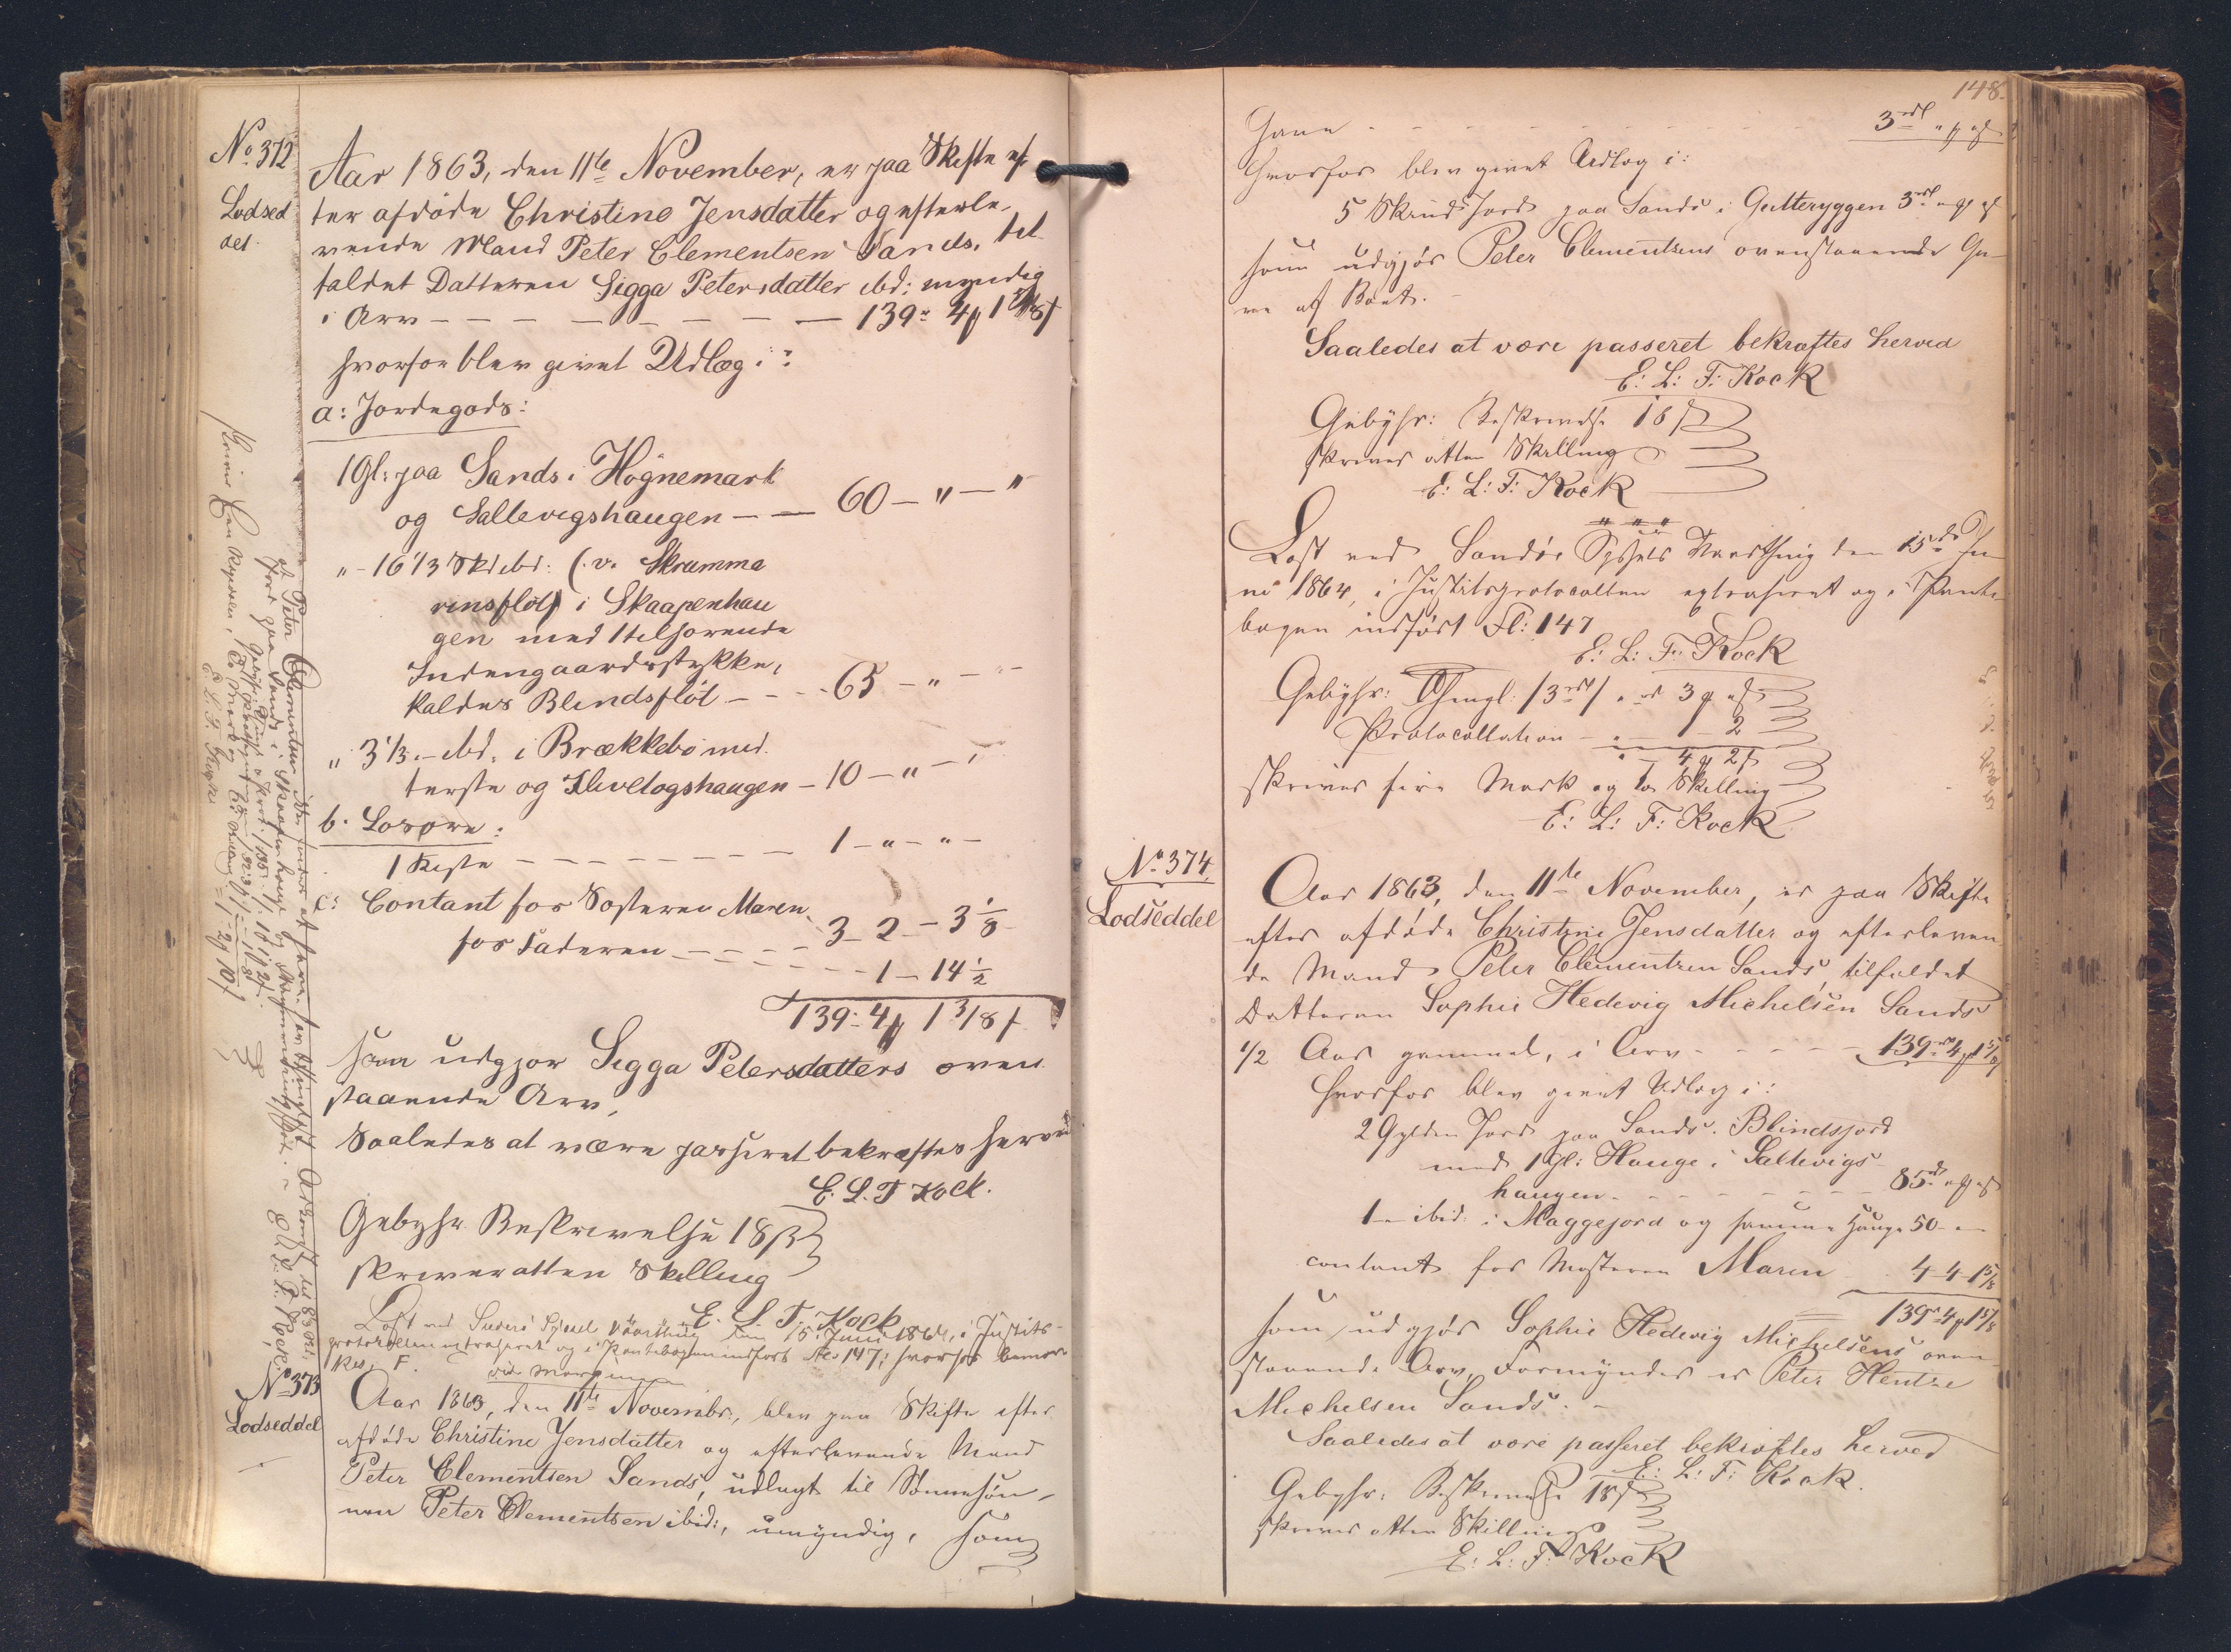 No 312
Lodsed
del.
Aar 1863, den 11te November, er paa Skifte ef
ter afdøde Christine Jensdatter og efterle-
vende Mand Peter Clementsen Sands, til
faldet Datteren Sigga Petersdatter ibd: myndig
i Arv - - - - - - - 139 " 4
hvorfor blev givet Udlæg i:
a: Jordegods:
1 Gl: paa Sands i Høgnemark
og Sallevigshaugen - - 60 - " - "
" - 16 1/3 Sk ibd: (v. Skramma
vinsfløtj i Skaapenhau
gen med 1 tilhørende
Indengaardsstykke,
kaldes Blindsfløt - - - 65 - " - "
" 3 1/3 - ibd: i Brækkebø ned
terste og Klivelogshaugen - 10 - " - "
b. Løsøre:
1 Kiste - - - - - - - 1 - " - " -
c: Contant for Søsteren Maren 3 - 2 - 3 1/8
for Faderen - - - - - - 1 - 14 1/2
139 - 4 1 3/8
som udgjør Sigga Petersdatters oven
staaende Arv.
Saaledes at være passeret bekræftes herved
E. L. F. Kock.
Gebyhr Beskrivelse 18 ß
skriver atten Skilling
E. L. F. Kock
Læst ved Suderø Syssel Vaarthing den 15. Juni 1864, i Justits-
protokollen extraheret og i Pantebogen indført Fl. 147; hvorfor bemær
kes
vide Margenen
No 373
Lodseddel
Aar 1863, den 11te Novembr., blev paa Skifte efter
afdøde Christine Jensdatter og efterlevende Mand
Peter Clementsen Sands, udlagt til Sønnesøn-
nen Peter Clementsen ibid:, umyndig, som
148.
Gave - - - - - - - 3 rdl " "
hvorfor blev givet Udlæg i:
5 Skinds Jord paa Sands i Gutteryggen 3 rdl " "
som udgjør Peter Clementsens ovenstaaende Ga-
ve af Boet. -
Saaledes at være passeret bekræftes herved
E: L: F: Kock
Gebyhr: Beskrivelse 18 ß
skriver atten Skilling
E: L: F: Kock
Læst ved Sandøe Syssels Vaarthing den 15de Ju-
ni 1864, i Justitsprotocollen extraheret og i Pante-
bogen indført Fl: 147
E: L: F: Kock
Gebyhr: Thingl. /3 rdl/ " 3
Protocollation - " 1 - 2
" - 4 2 ß
skriver fire Mark og to Skilling
E: L: F: Kock
No 374.
Lodseddel
Aar 1863, den 11te November, er paa Skifte
efter afdøde Christine Jensdatter og efterleven
de Mand Peter Clementsen Sands, tilfaldet
Datteren Sophie Hedevig Michelsen Sands
1/2 Aar gammel, i Arv - - - - - 139 4 1 5/8
hvorfor blev givet Udlæg i:
2 Gylden Jord paa Sands i Blindsjord
med 1 Gl: Hauge i Sallevigs
haugen - - - - - - - 85 " "
1 - ibid: i Maggejord og samme Hauge 50 - " -
contant for Mosteren Maren 4 - 4 - 1 5/8
139 4 1 5/8
som udgjør Sophie Hedevig Michelsens oven-
staaende Arv. Formynder er Peter Hentze
Michelsen Sands. -
Saaledes at være passeret bekræftes herved
E: L: F: Kock.
Gebyhr: Beskrivelse 18 ß
skriver atten Skilling
E: L: F: Kock